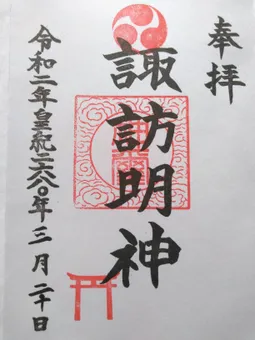 奉拝
諏訪明神
令和二年皇紀二六八〇年三月二十日